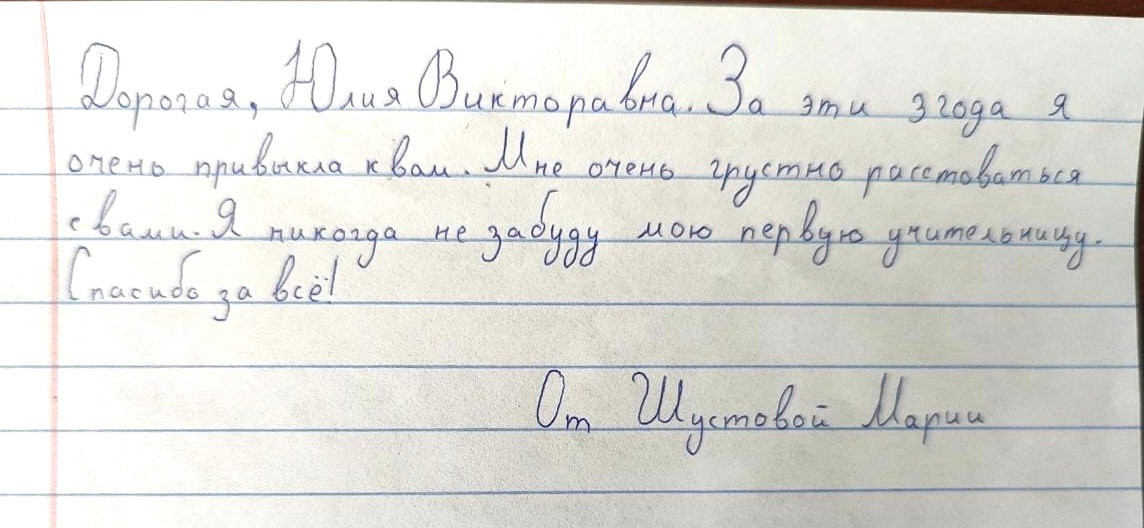 Дорогая, Юлия Викторавна. За эти 3 года я
очень привыкла к вам. Мне очень грустно расстоваться
с вами. Я никогда не забуду мою первую учительницу.
Спасибо за всё!
От Шустовой Марии